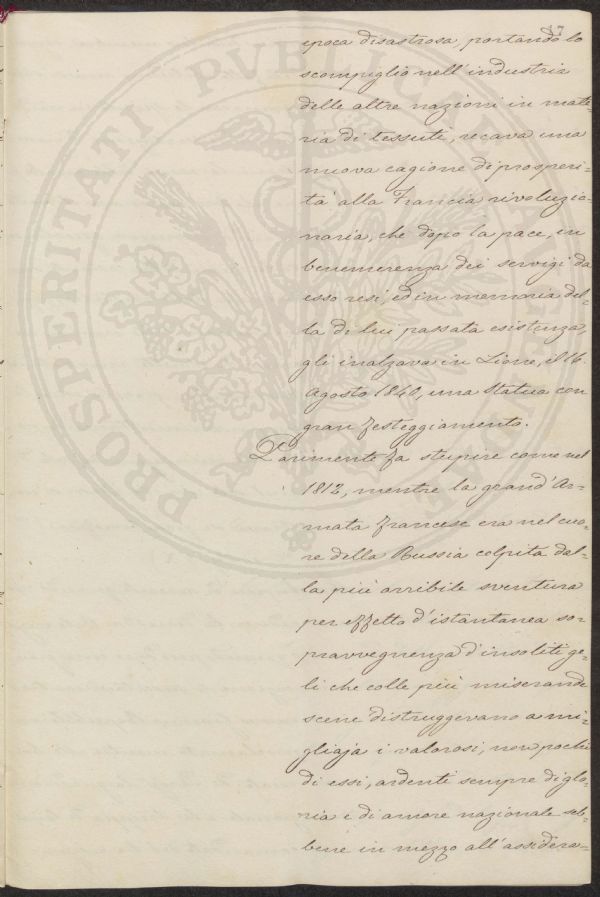 17
epoca disastrosa, portando lo
scompiglio nell'industria
delle altre nazioni in mate=
ria di tessuti, recava una
nuova cagione di prosperi=
tà alla Francia rivoluzio=
naria, che dopo la pace, in
benemerenza dei servigi da
esso resi, ed in memoria del=
la di lui passata esistenza,
gli inalzava in Lione, il 16.
Agosto 1840, una Statua con
gran festeggiamento.
Parimente fa stupire come nel
1812, mentre la grand'Ar=
mata francese era nel cuo=
re della Russia colpita dal=
la più orribile sventura
per effetto d'istantanea so=
pravvegnenza d'insoliti ge=
li che colle più miserande
scene distruggevano a mi=
gliaja i valorosi, non pochi
di essi, ardenti sempre di glo=
ria e di amore nazionale seb=
bene in mezzo all'assidera=
PROSPERITATI PUBLICAE